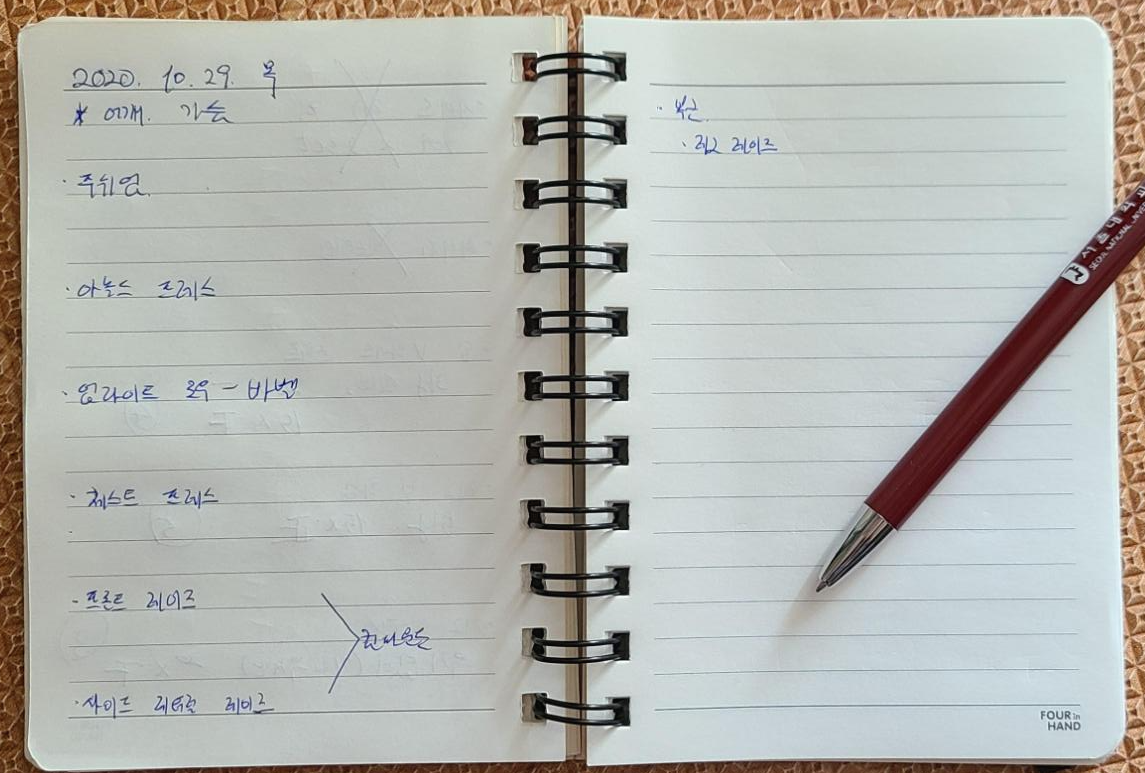 2020. 10. 29. 목
* 어깨. 가슴
· 푸쉬업.
· 아놀드 프레스
· 업라이트 로우 - 바벨
· 체스트 프레스
· 프론트 레이즈
컴파운드
· 사이드 레터럴 레이즈
· 복근.
· 레그 레이즈
서울대학교
SEOUL NATIONAL
FOUR in
HAND